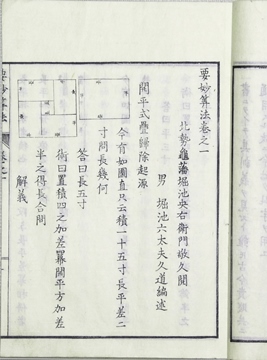 要妙算法卷之一
北勢龜藩堀池央右衛門敬久閲
男 堀池六太夫久道編述
開平式豐歸除起源
今有如圖直尺云積一十五寸長平差二
寸問長幾何
答曰長五寸
術曰置積四之加差冪開平方加差
半之得長合問
解義
要妙算法
卷之一